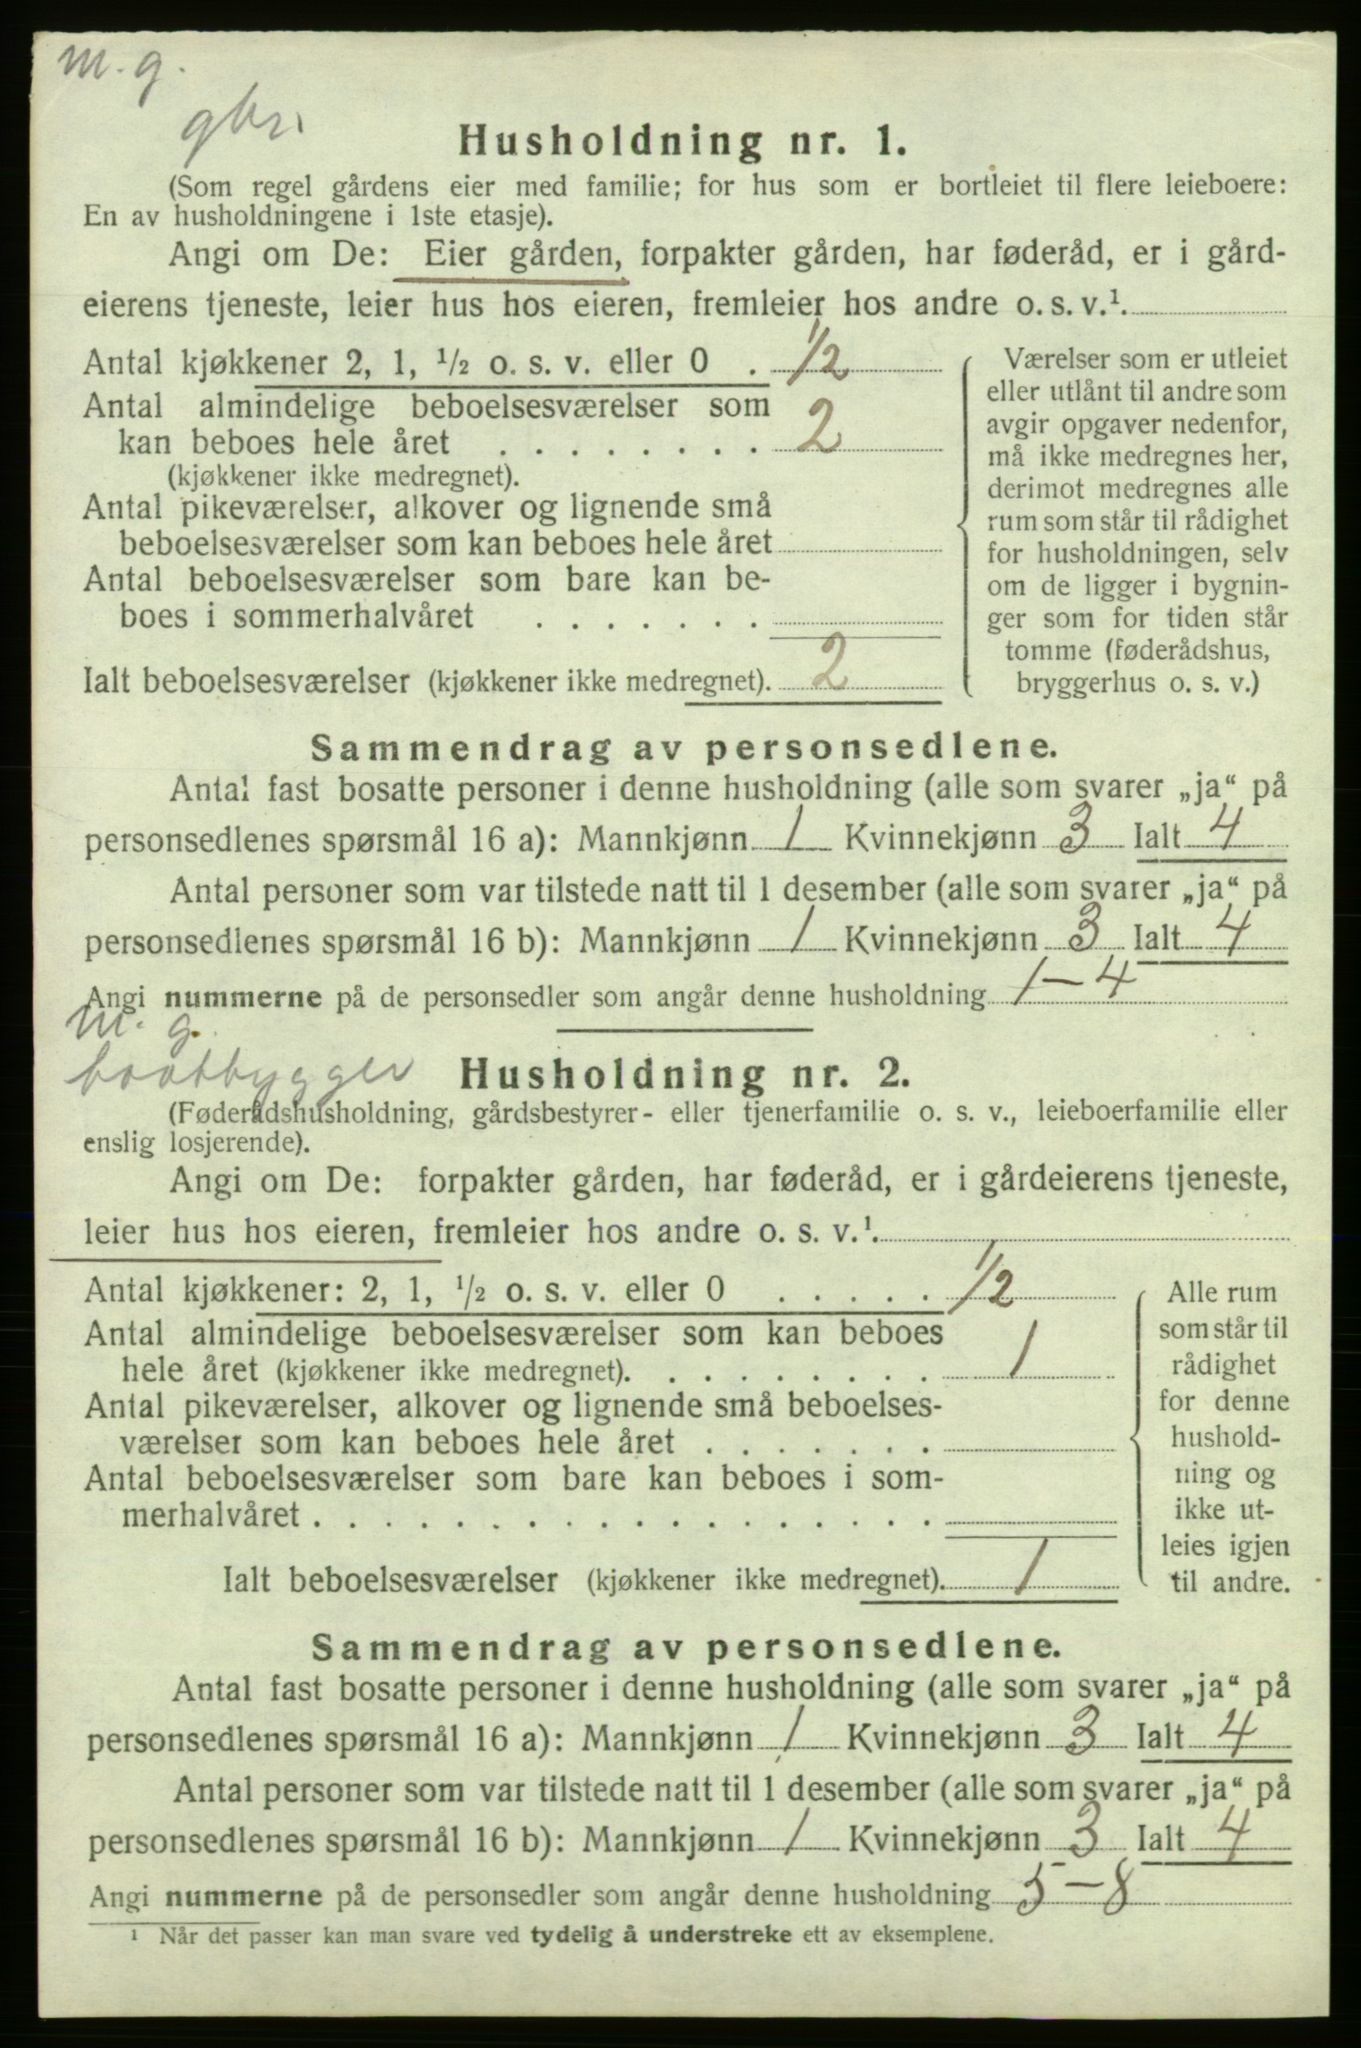 m. g.
gbr.
Husholdning nr. 1.
(Som regel gårdens eier med familie; for hus som er bortleiet til flere leieboere:
En av husholdningene i 1ste etasje).
Angi om De: Eier gården, forpakter gården, har føderåd, er i gård-
eierens tjeneste, leier hus hos eieren, fremleier hos andre o. s. v.¹.
Antal kjøkkener 2, 1, ½ o. s. v. eller 0 . 1/2
Antal almindelige beboelsesværelser som
kan beboes hele året . . . . . . . . 2
(kjøkkener ikke medregnet).
Antal pikeværelser, alkover og lignende små
beboelsesværelser som kan beboes hele året
Antal beboelsesværelser som bare kan be-
boes i sommerhalvåret . . . . . . .
Ialt beboelsesværelser (kjøkkener ikke medregnet). 2
Værelser som er utleiet
eller utlånt til andre som
avgir opgaver nedenfor,
må ikke medregnes her,
derimot medregnes alle
rum som står til rådighet
for husholdningen, selv
om de ligger i bygnin-
ger som for tiden står
tomme (føderådshus,
bryggerhus o. s. v.)
Sammendrag av personsedlene.
Antal fast bosatte personer i denne husholdning (alle som svarer „ja“ på
personsedlenes spørsmål 16 a): Mannkjønn 1 Kvinnekjønn 3 Ialt 4
Antal personer som var tilstede natt til 1 desember (alle som svarer „ja“ på
personsedlenes spørsmål 16 b): Mannkjønn 1 Kvinnekjønn 3 Ialt 4
Angi nummerne på de personsedler som angår denne husholdning 1-4
m. g.
baatbygger
Husholdning nr. 2.
(Føderådshusholdning, gårdsbestyrer- eller tjenerfamilie o. s. v., leieboerfamilie eller
enslig losjerende).
Angi om De: forpakter gården, har føderåd, er i gårdeierens tjeneste,
leier hus hos eieren, fremleier hos andre o. s. v.¹.
Antal kjøkkener: 2, 1, ½ o. s. v. eller 0 . . . . . 1/2
Antal almindelige beboelsesværelser som kan beboes
hele året (kjøkkener ikke medregnet). . . . . . . . . 1
Antal pikeværelser, alkover og lignende små beboelses-
værelser som kan beboes hele året . . . . . . .
Antal beboelsesværelser som bare kan beboes i som-
merhalvåret . . . . . . . . . . . . . . . . . .
Ialt beboelsesværelser (kjøkkener ikke medregnet). 1
Alle rum
som står til
rådighet
for denne
hushold-
ning og
ikke ut-
leies igjen
til andre.
Sammendrag av personsedlene.
Antal fast bosatte personer i denne husholdning (alle som svarer „ja“ på
personsedlenes spørsmål 16 a): Mannkjønn 1 Kvinnekjønn 3 Ialt 4
Antal personer som var tilstede natt til 1 desember (alle som svarer „ja“ på
personsedlenes spørsmål 16 b): Mannkjønn 1 Kvinnekjønn 3 Ialt 4
Angi nummerne på de personsedler som angår denne husholdning 5-8
¹ Når det passer kan man svare ved tydelig å understreke ett av eksemplene.